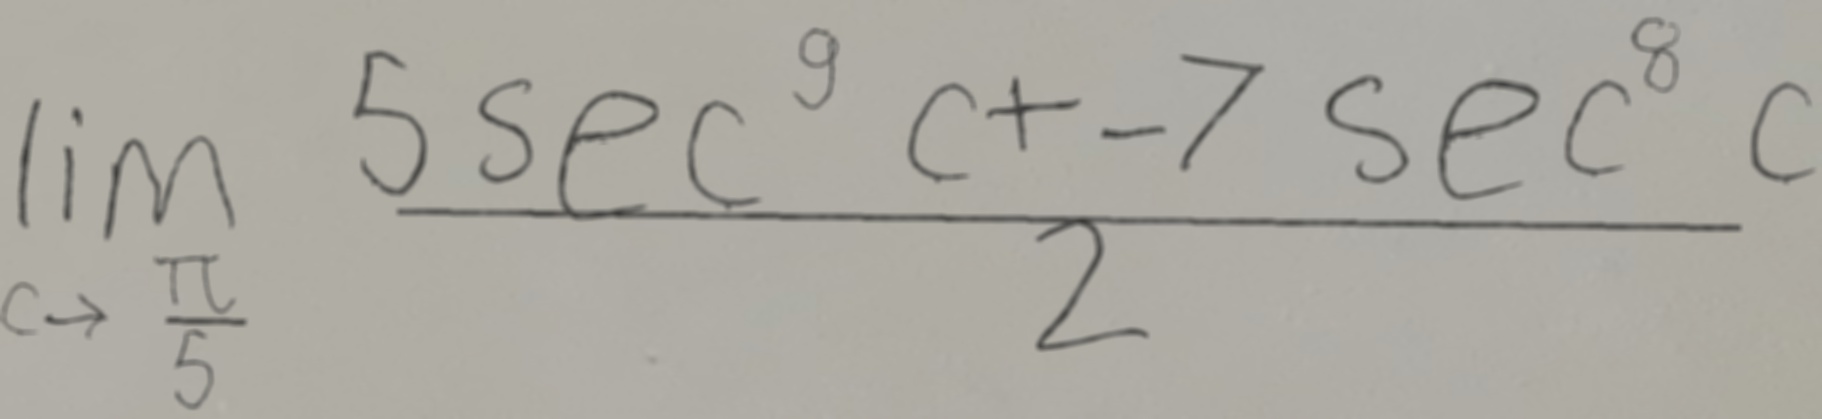 \lim_{c \to \frac{\pi}{5}} \frac{5 \sec^9 c + -7 \sec^8 c}{2}